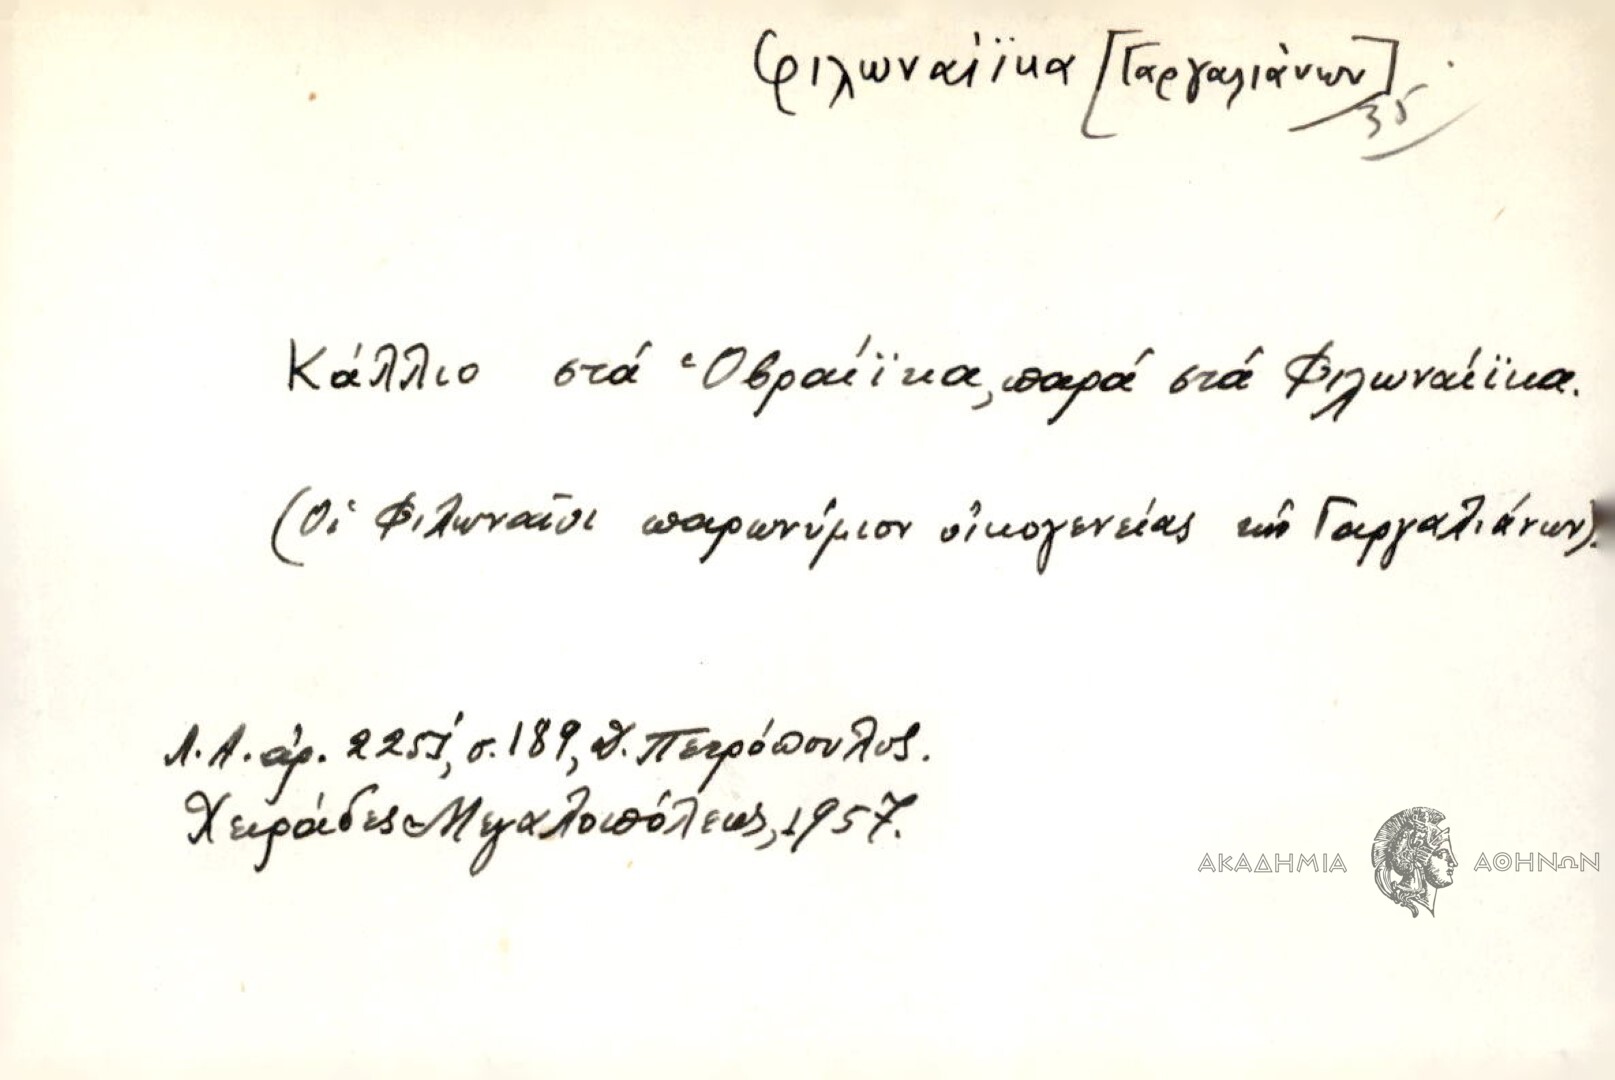 φιλωναίϊκα [Γαργαλιάνων]
35
Κάλλιο στά Ὁβραίϊκα, παρά στά Φιλωναίϊκα.
(Οἱ Φιλωναῖοι παρωνύμιον οἰκογενείας τῶν Γαργαλιάνων).
Λ.Α. ἀρ. 2251, σ. 189, Δ. Πετρόπουλος.
Χειράδες Μεγαλοπόλεως, 1957.
ΑΚΑΔΗΜΙΑ ΑΘΗΝΩΝ